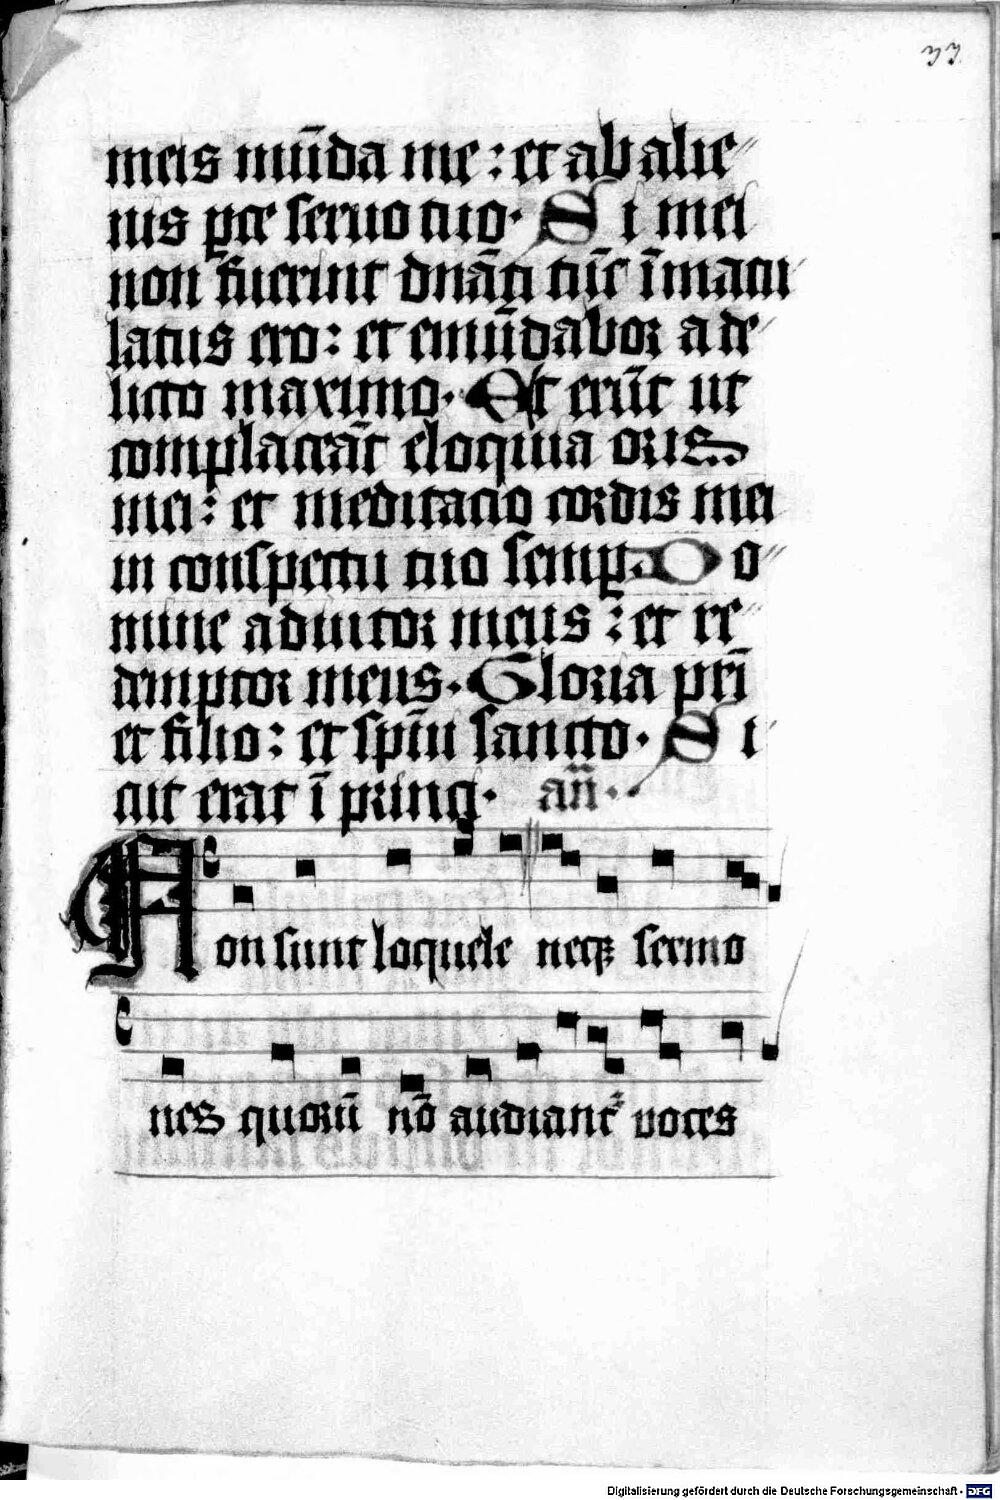 33
meis mūda me : et ab alie
nis ꝑce seruo tuo · Si mei
non fuerint dnāti tūc īmacu
latus ero : et emūdabor a de
licto maximo · Et erūt ut
complaceāt eloquia oris
mei : et meditacio cordis mei
in conspectu tuo semꝑ Do
mine adiutor meus : et re
demptor meus · Gloria pr̄i
et filio : et sp̄iu sancto · Si
cut erat ī princ̄ · an̄ ·
Non sunt loquele neqꝫ sermo
nes quorū nō audiant᷑ voces
Digitalisierung gefördert durch die Deutsche Forschungsgemeinschaft - DFG